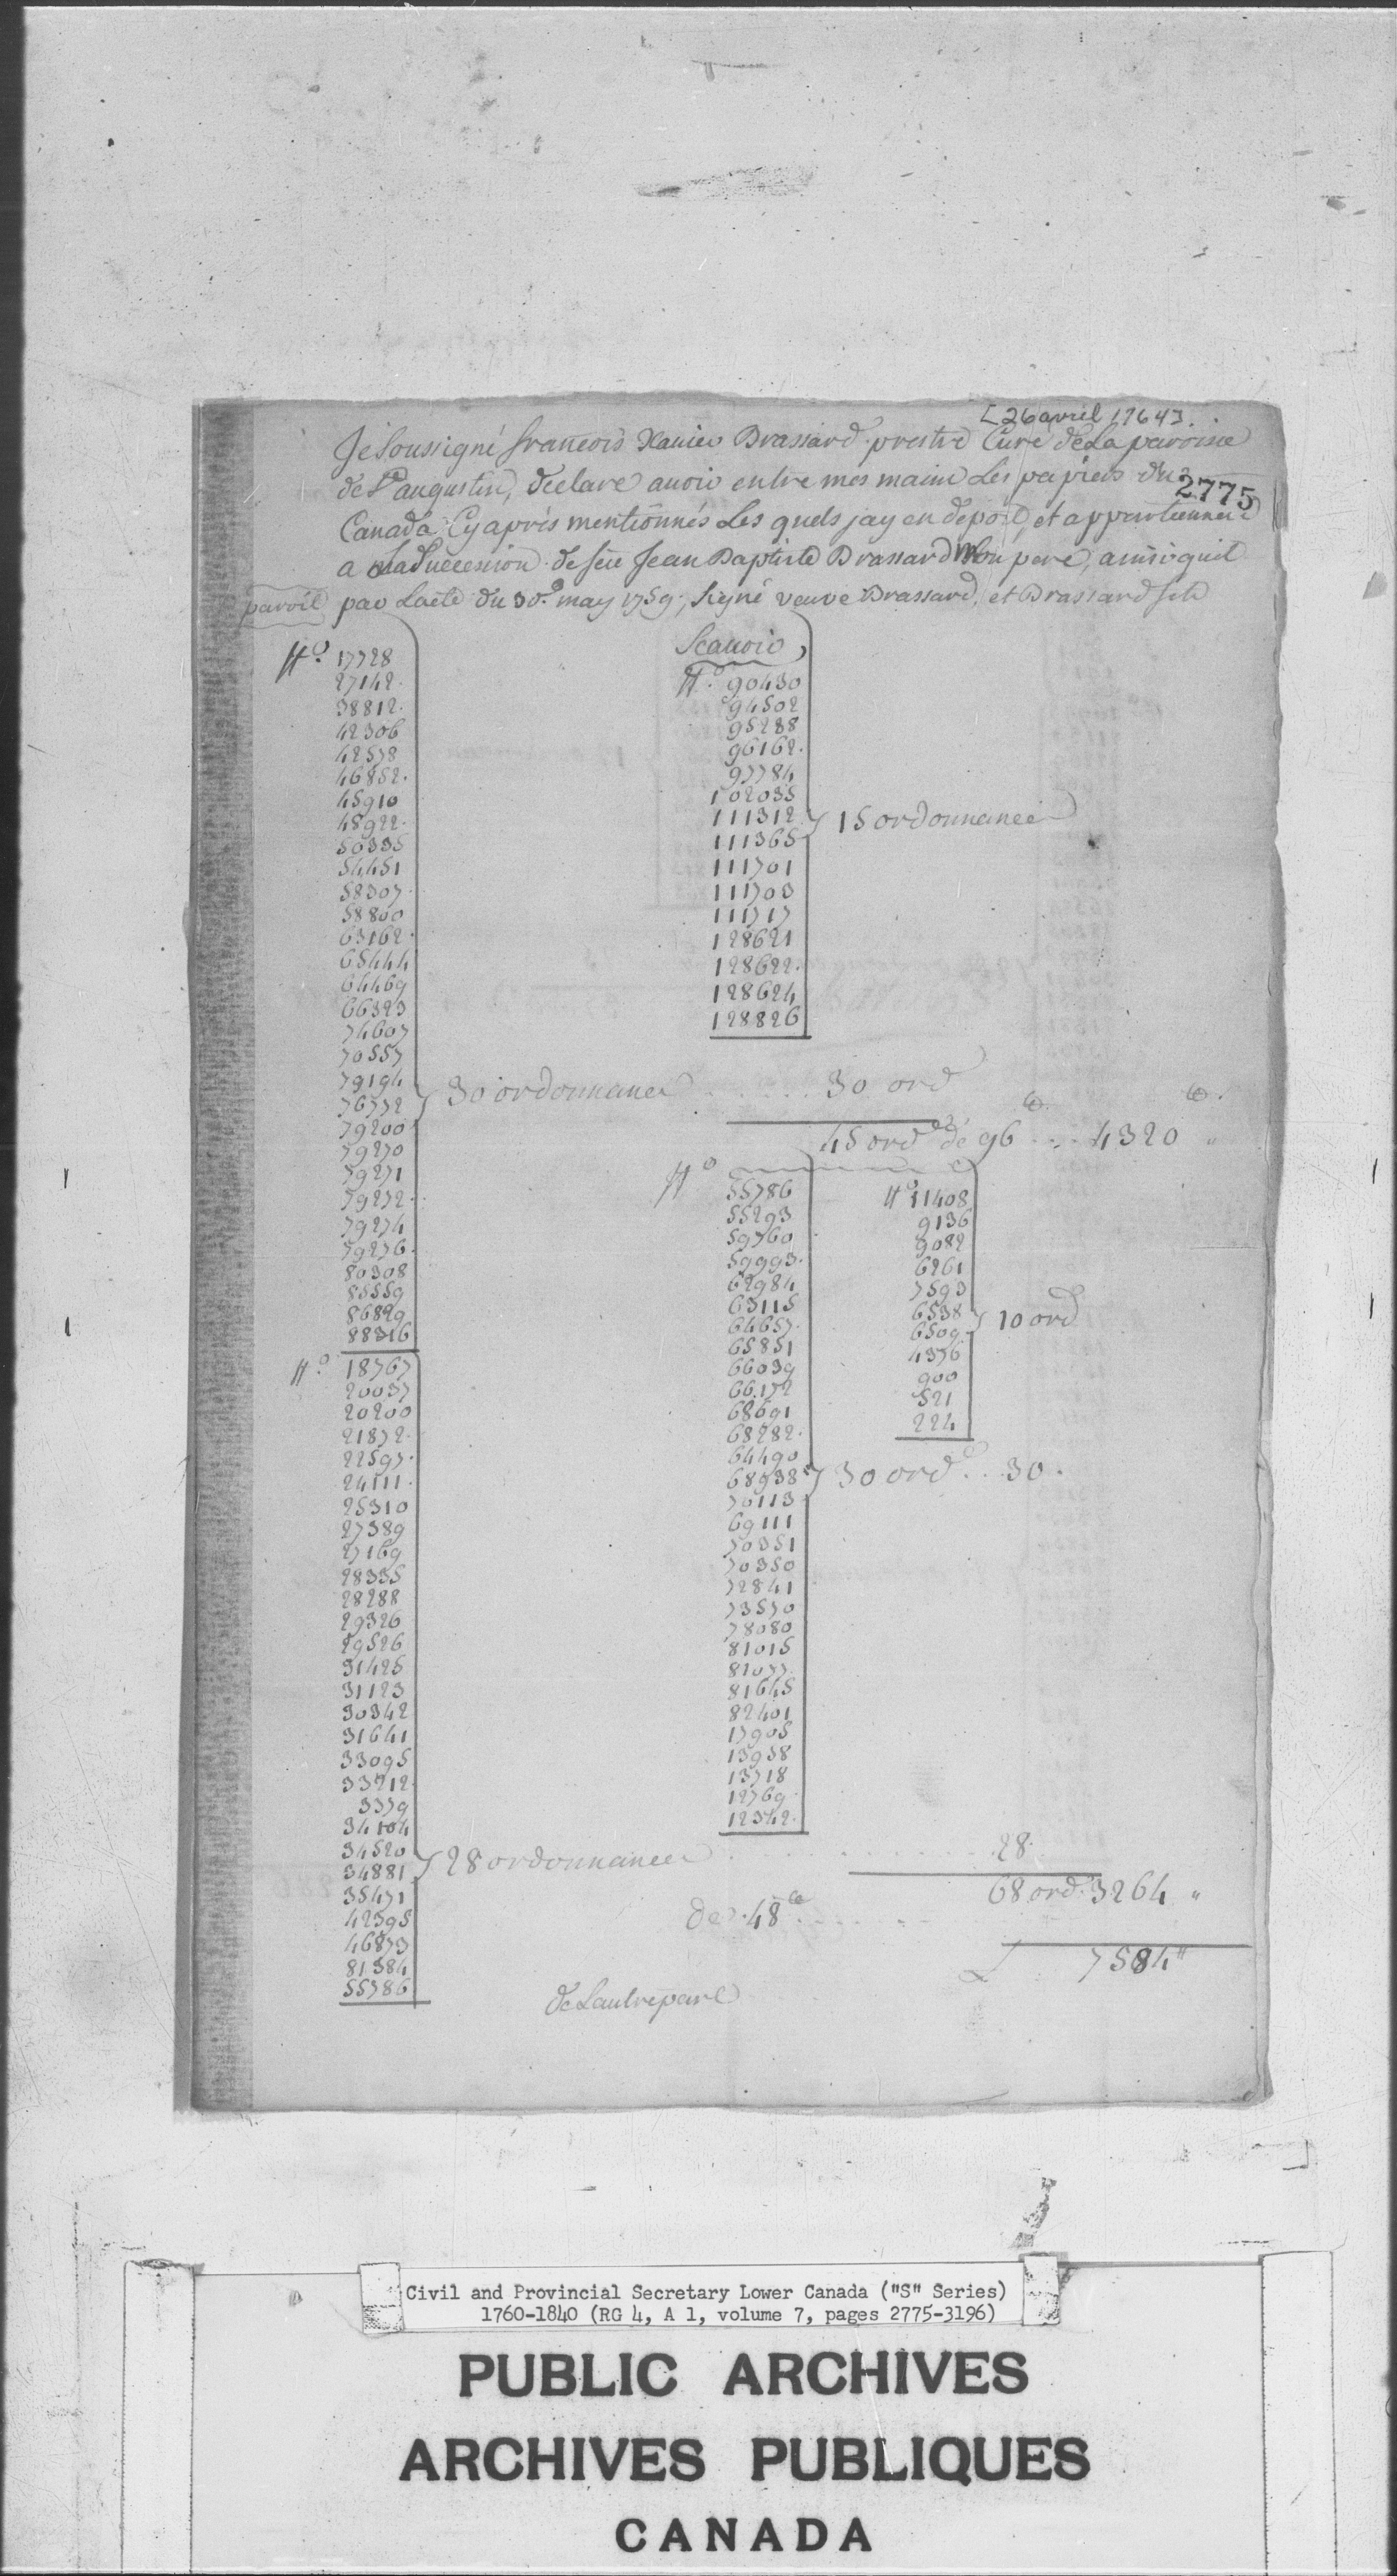 [26 avril 1764].
Je Soussigné francois Xavier Brassard prestre Curé de La paroisse
de St augustin, declare avoir entre mes mains Les papiers du
2775
Canada Cy aprés mentionnés Les quels jay en depost, et appartiennent
a La Succession de feu Jean Baptiste Brassard Mon pere, ainsi quil
paroit par Lacte du 30e may 1759, signé veuve Brassard, et Brassard ptre
Scavoir
No. 17728
27142.
38812.
42306
42578
46852.
45910
48922.
50335
54451
58307.
58800
63162.
65444
64469
66323
74607
70557
79194
76772
79200
79270
79271
79272.
79274
79276.
80308
85559
86829
88316
30 ordonnances . . . . . . 30 ord
No. 90430
94502
95288
96162.
97784
102035
111312
111365
111701
111703
111717
128621
128622.
128624
128826
15 ordonnances
45 ord es de 96 .... 4320 "
No. 18767
20037
20200
21872.
22597.
24111.
25310
27389
27169
28335
28288
29326
29526
31425
31123
30342
31641
33095
33212
3379
34104
34520
34881
35471
42395
46873
81384
55786
28 ordonnances . . . . . . . . . 28.
No 55786
55293
59760
59993.
62984
63115
64657.
65851
66039
66172
68691
68282.
64490
68938
70113
69111
70351
70350
72841
73570
78080
81015
81077
81645
82401
17905
13958
13718
12769.
12342.
30 ord . . 30.
No 11408
9136
9082
6261
7593
6538
6509.
4376
900
521
224
10 ord
68 ord. 3264 "
de . 48 . . . . . .
7584 "
de Lautre part
Civil and Provincial Secretary Lower Canada ("S" Series)
1760-1840 (RG 4, A 1, volume 7, pages 2775-3196)
PUBLIC ARCHIVES
ARCHIVES PUBLIQUES
CANADA